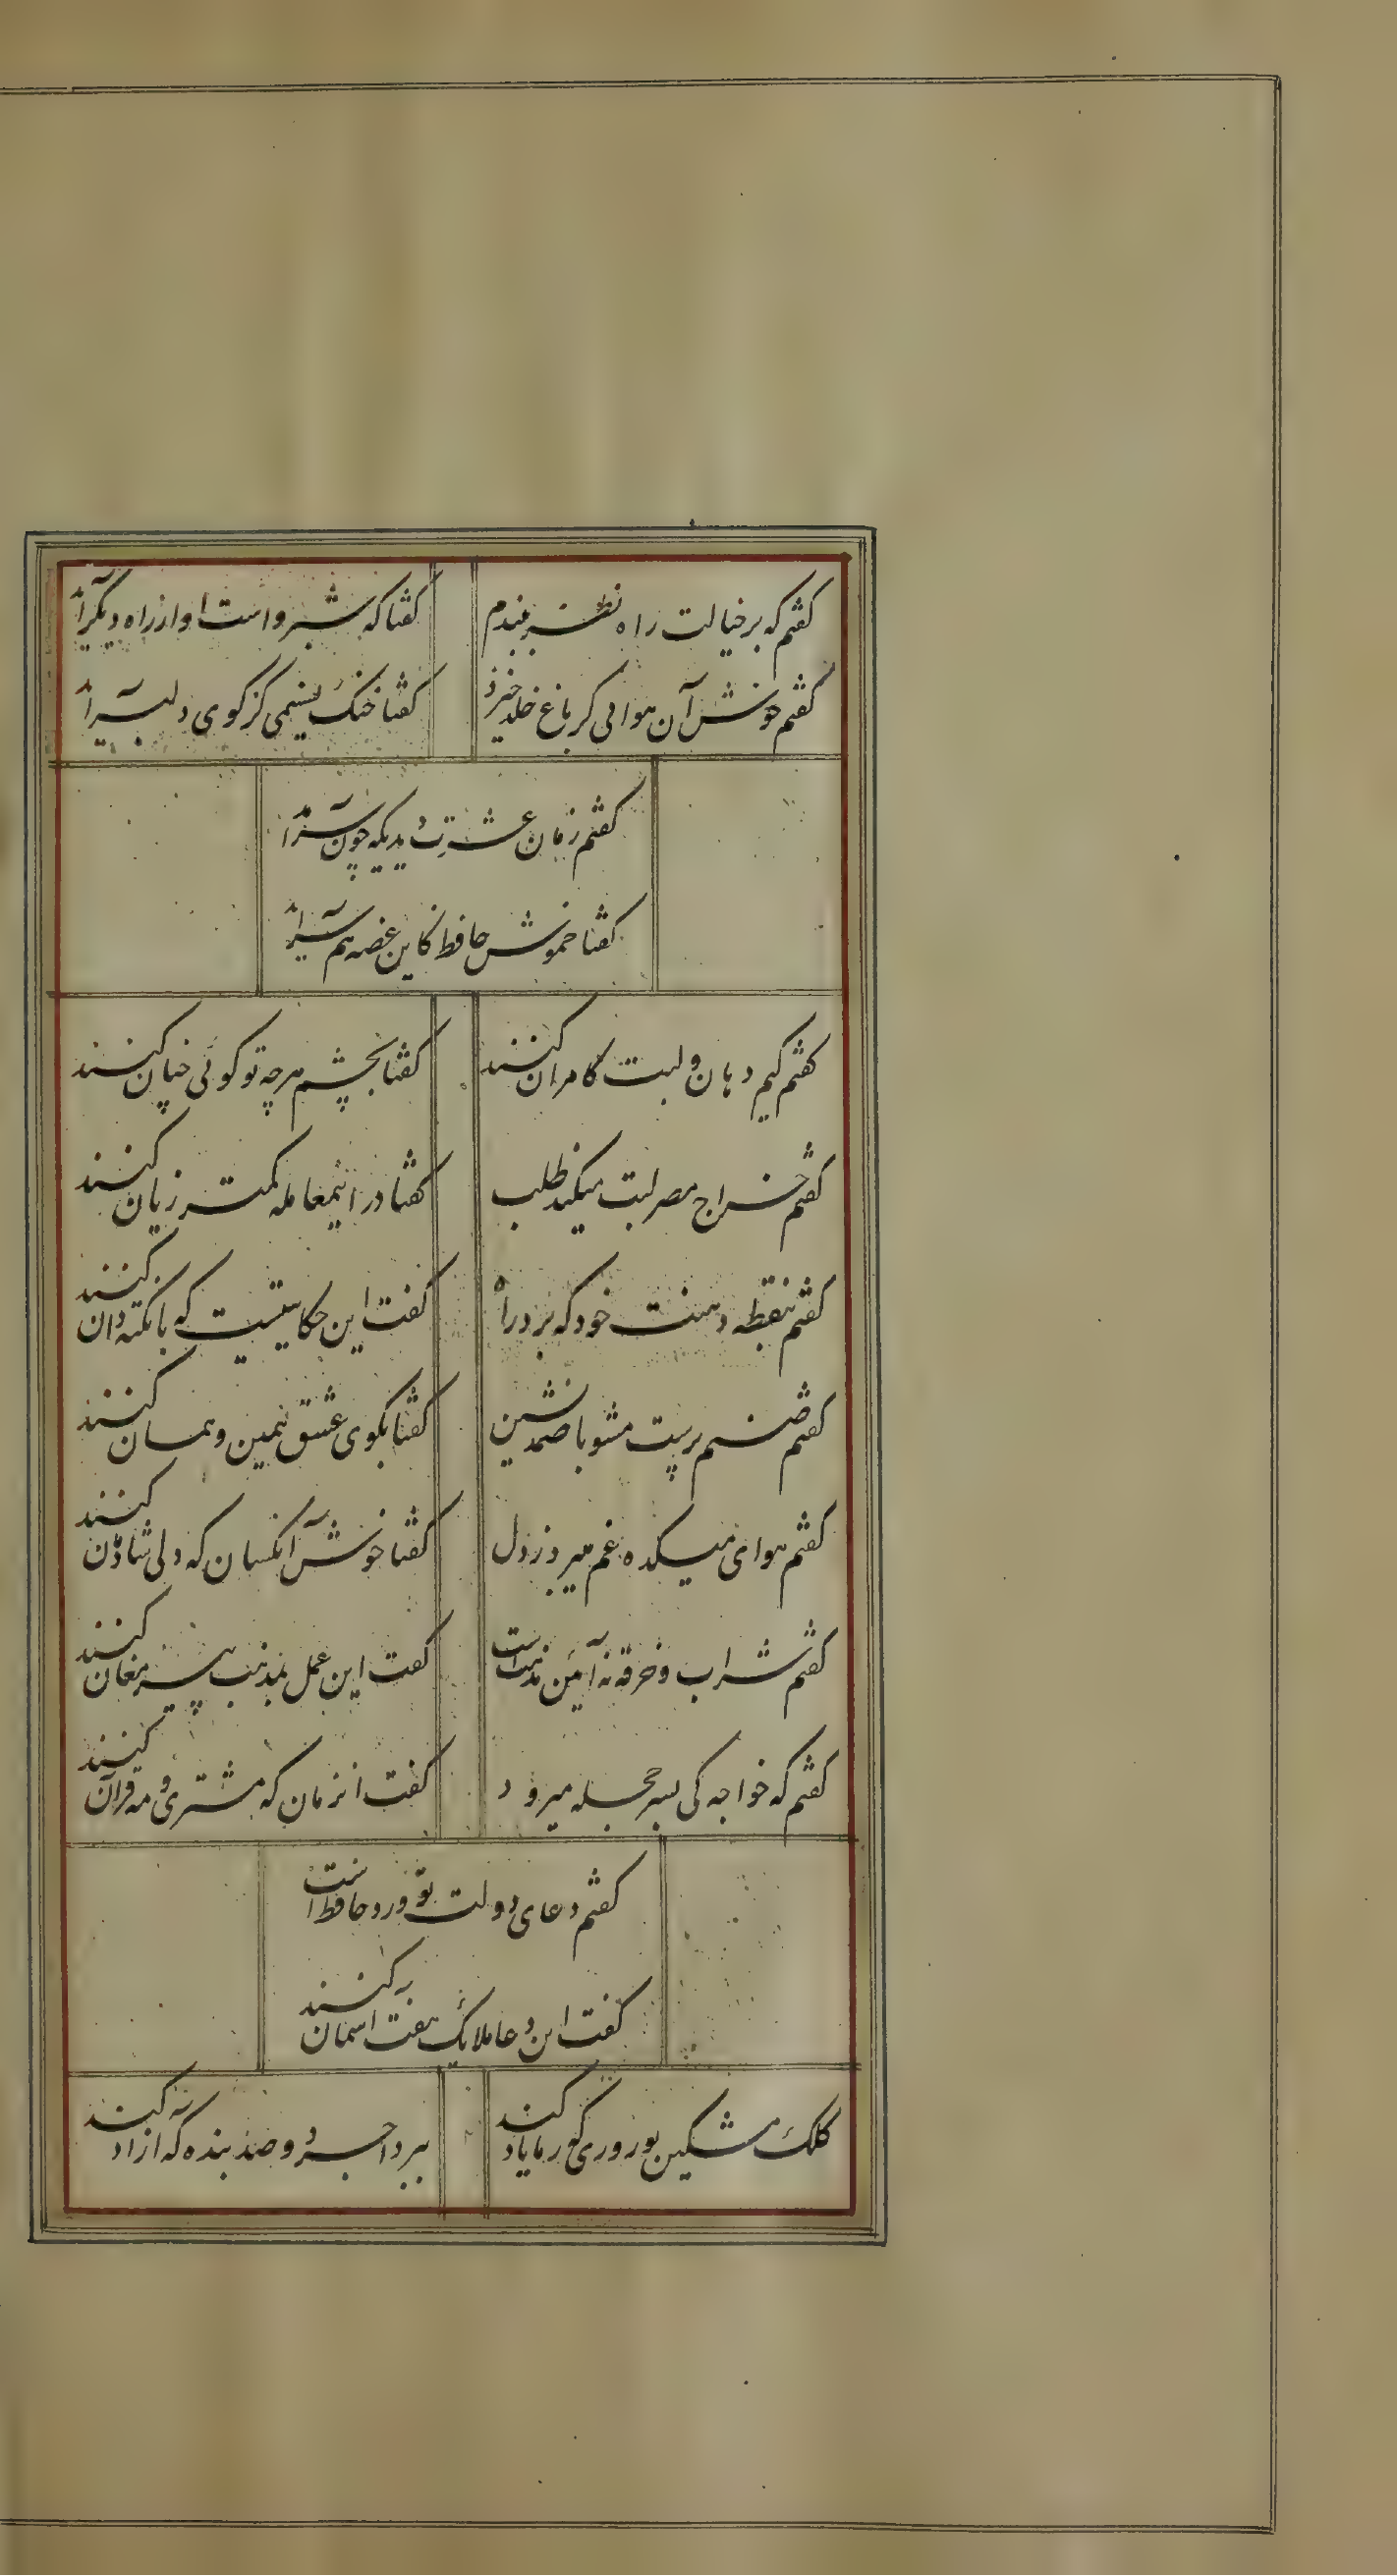 گفتم که بر خیالت راه نظر ببندم
گفتا که شبرو است او از راه دیگر آمد
گفتم خوش آن هوائی کز باغ خلد خیزد
گفتا خنک نسیمی کز کوی دلبر آمد
گفتم زمان عشرت دیدیکه چون سر آمد
گفتا خموش حافظ کاین غصه هم سر آمد
گفتم کیم دهان و لبت کامران کنند
گفتا بچشم هرچه تو گوئی چنان کنند
گفتم خراج مصر لبت میکند طلب
گفتا در اینمعامله کمتر زیان کنند
گفتم بنقطه دهنت خود که برد راه
گفت این حکایتیست که با نکته دان کنند
گفتم صنم پرست مشو با صمد نشین
گفتا بکوی عشق همین و همان کنند
گفتم هوای میکده غم میبرد ز دل
گفتا خوش آنکسان که دلی شادمان کنند
گفتم شراب و خرقه نه آئین مذهبست
گفت این عمل بمذهب پیر مغان کنند
گفتم که خواجه کی بسر حجله میرود
گفت انزمان که مشتری و مه قران کنند
گفتم دعای دولت تو ورد حافظ است
گفت این دعا ملایک هفت اسمان کنند
کلک مشکین تو روزی که ز ما یاد کند
ببرد اجر دو صد بنده که آزاد کند